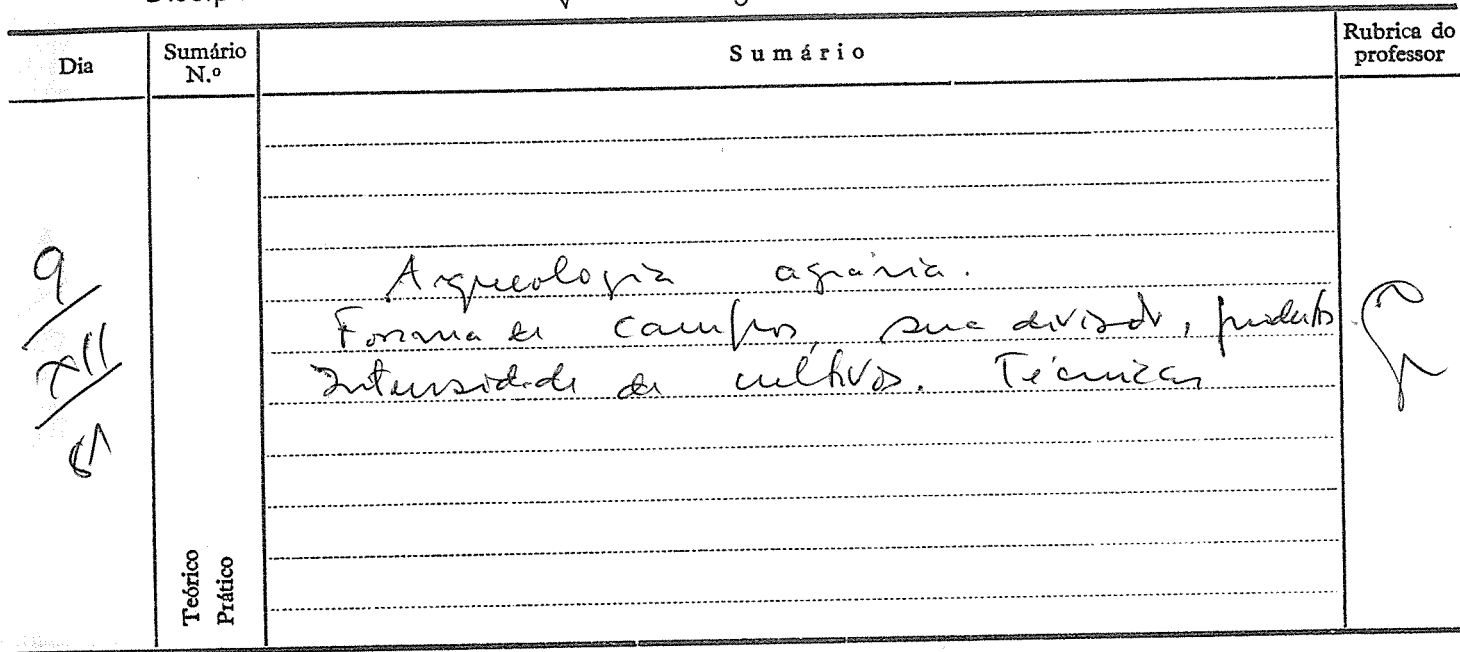 Dia
Sumário N.º
Sumário
Rubrica do professor
9/XII/81
Arqueologia agrária.
Forma de campos, sua divisão, produtos
Intensidade de cultivos. Técnicas
Teórico
Prático